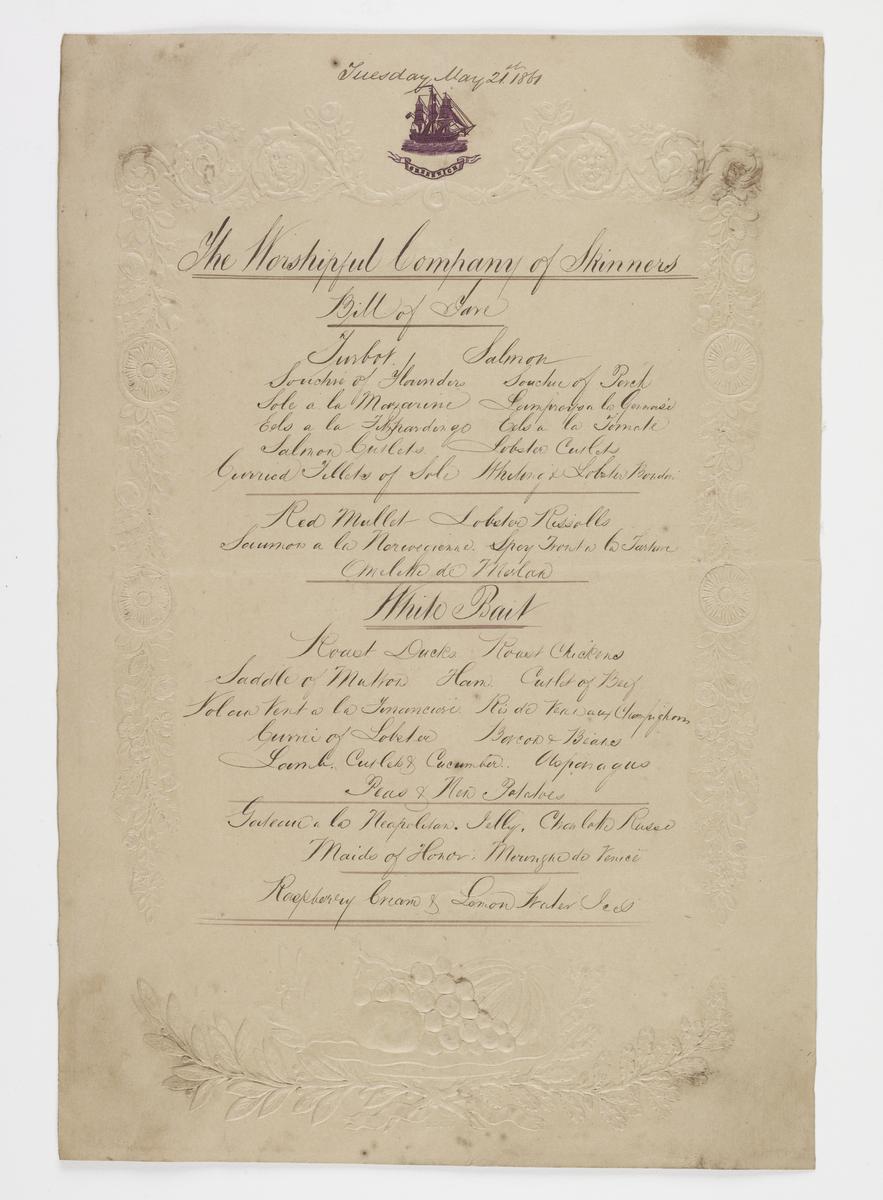 Tuesday May 21st 1861
GREENWICH
The Worshipful Company of Skinners
Bill of Fare
Turbot. Salmon
Souchee of Flounders Souchee of Perch
Sole a la Mazarine Lampreys a la
Eels a la Fitzhardinge Eels a la Tomate
Salmon Cutlets. Lobster Cutlets
Curried Fillets of Sole Whiting & Lobster
Red Mullet Lobster Rissolls
Saumon a la Norwegienne. Spey Trout a la Tartare
Omelette de Merlan
White Bait
Roast Ducks Roast Chickens
Saddle of Mutton Ham. Cutlet of Beef
Vol au Vent a la Financiere Ris de Veau aux Champignons
Currie of Lobster Bacon & Beans
Lamb. Cutlets & Cucumber. Asparagus
Peas & New Potatoes
Gateau a la Neapolitan. Jelly. Charlotte Russe
Maids of Honor. Meringue de Venice
Raspberry Cream & Lemon Water Ices